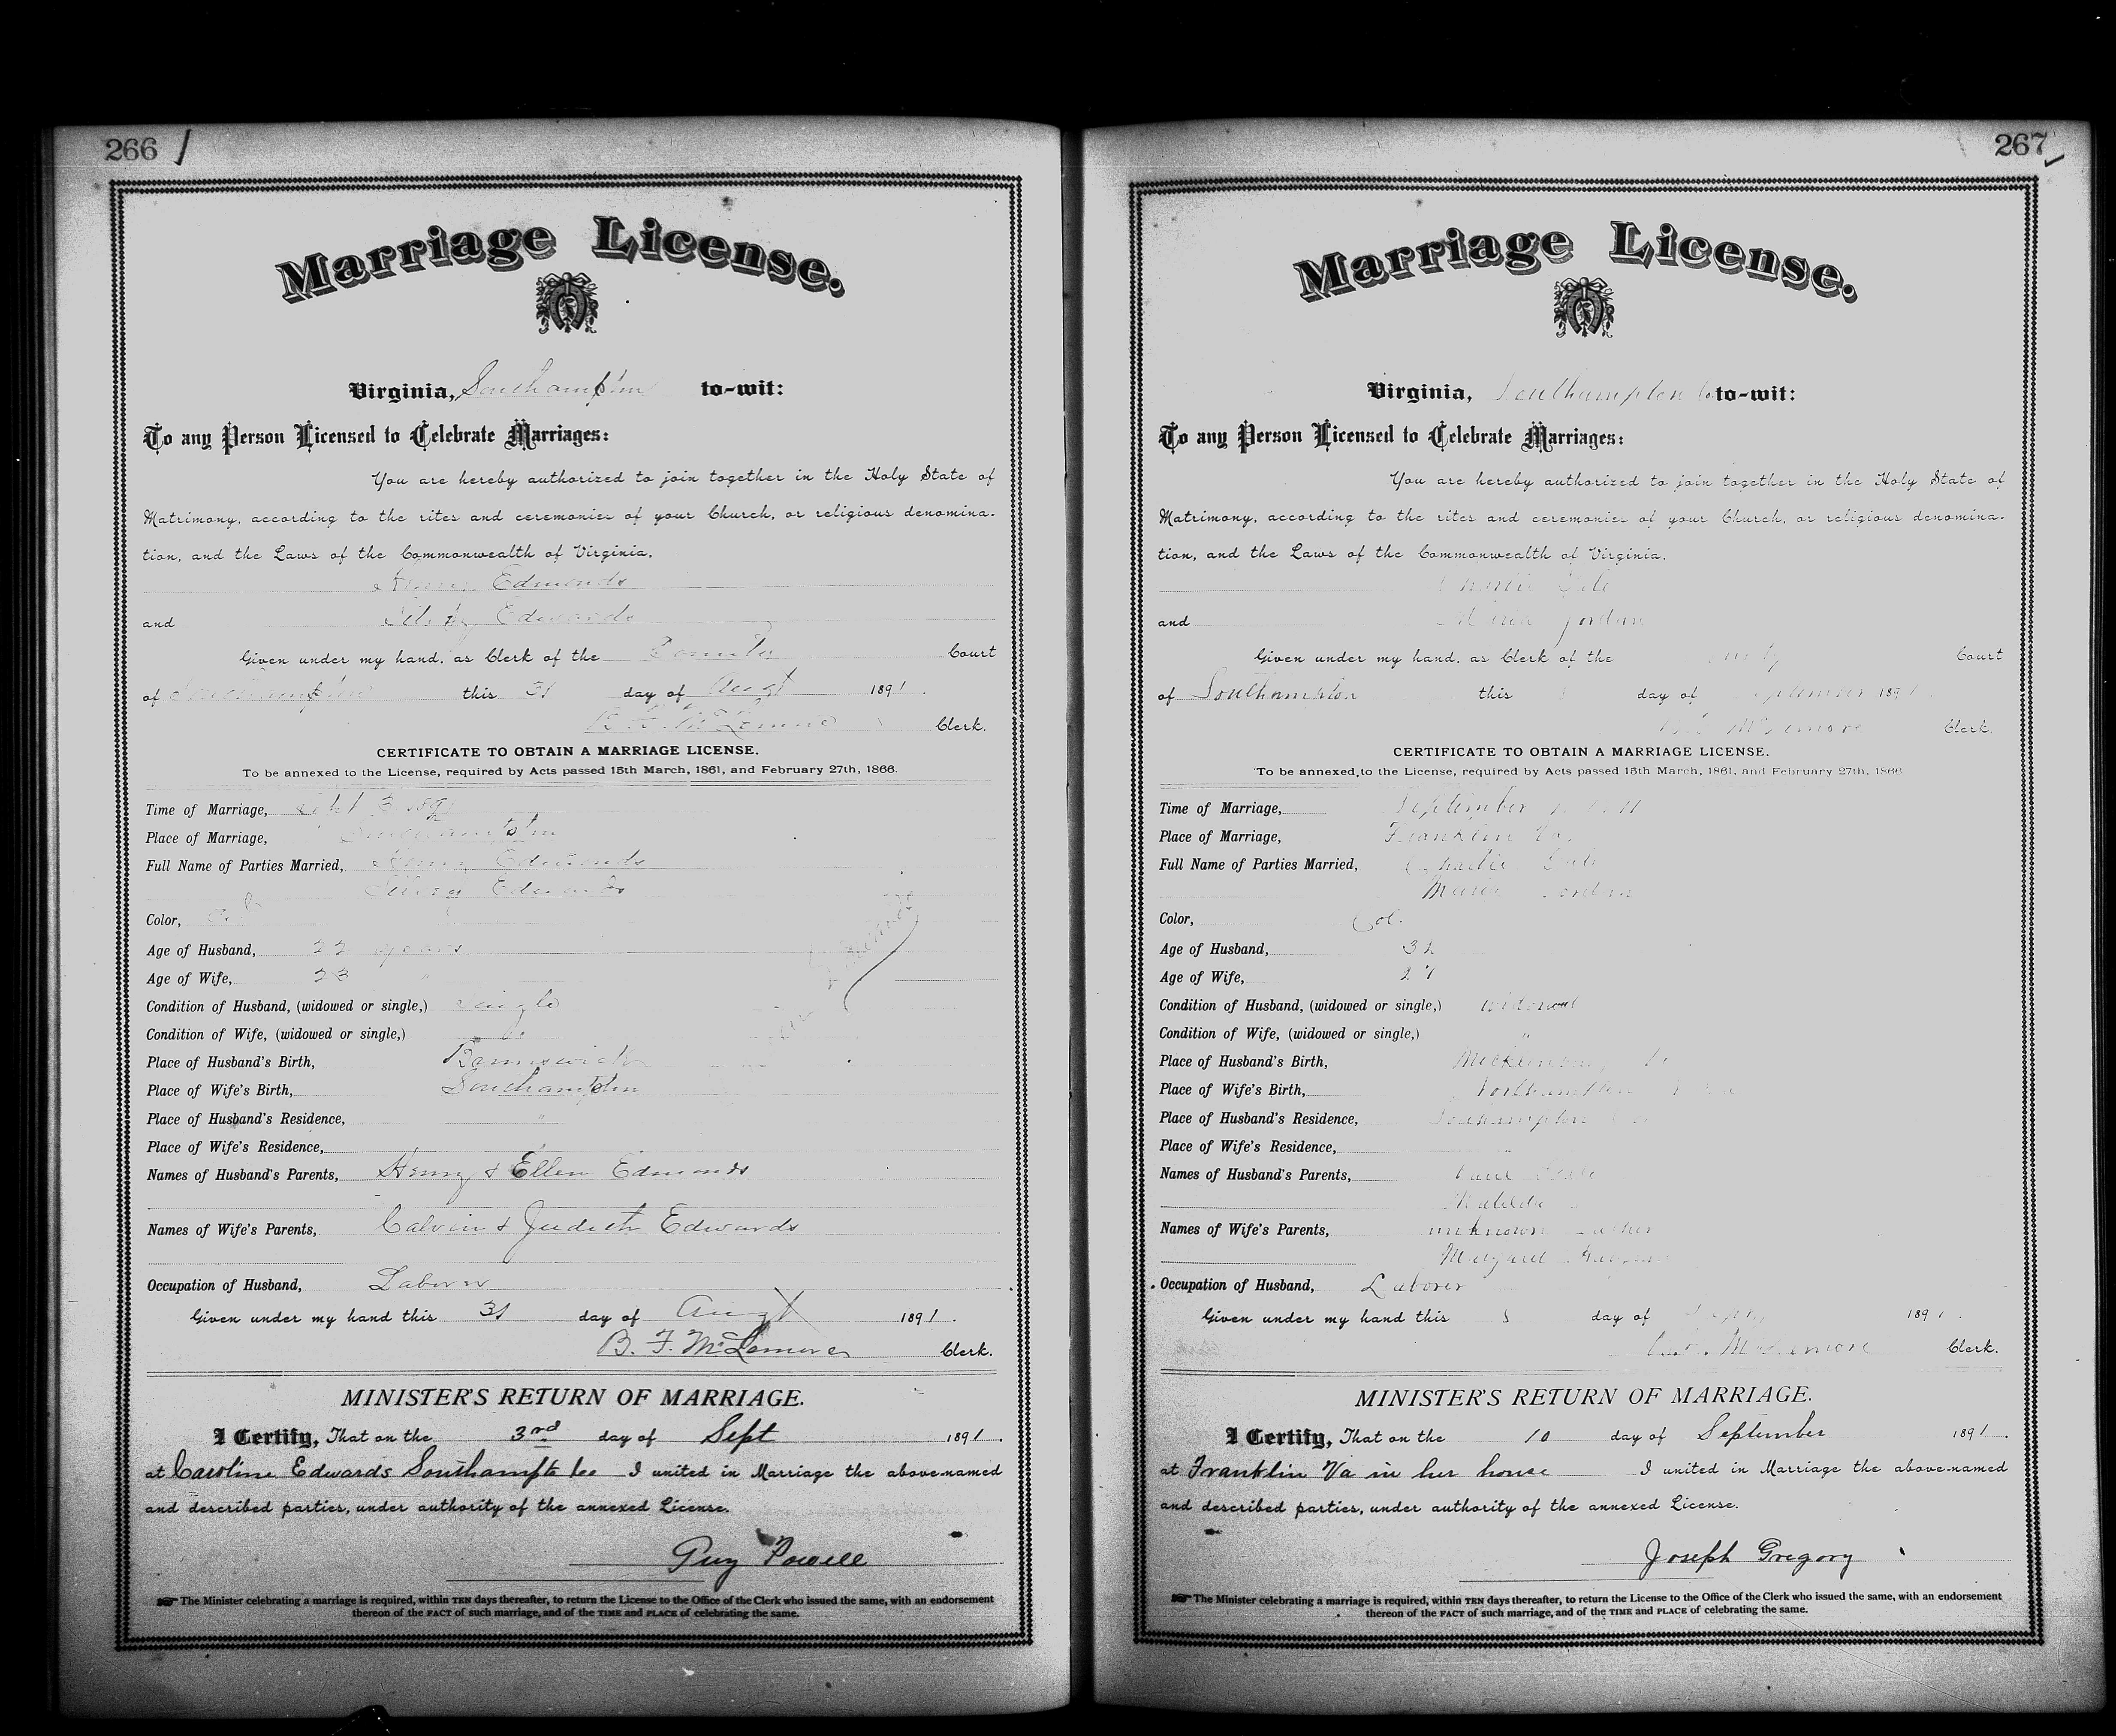 266
Marriage License.
Virginia, Southampton to-wit:
To any Person Licensed to Celebrate Marriages:
You are hereby authorized to join together in the Holy State of
Matrimony, according to the rites and ceremonies of your Church, or religious denomina-
tion, and the Laws of the Commonwealth of Virginia.
Henry Edmonds
and Edwards
Given under my hand, as Clerk of the County Court
of Southampton this 31 day of Augt 1891.
B. F. McLemore Clerk.
CERTIFICATE TO OBTAIN A MARRIAGE LICENSE.
To be annexed to the License, required by Acts passed 15th March, 1861, and February 27th, 1866.
Time of Marriage, Sept 3 1891
Place of Marriage, Southampton
Full Name of Parties Married, Henry Edmonds
Edwards
Color,
Age of Husband, 22 years
Age of Wife, 23 "
Condition of Husband, (widowed or single,) single
Condition of Wife, (widowed or single,)
Place of Husband's Birth, Brunswick
Place of Wife's Birth, Southampton
Place of Husband's Residence, "
Place of Wife's Residence,
Names of Husband's Parents, Henry & Ellen Edmonds
Names of Wife's Parents, Calvin & Judith Edwards
Occupation of Husband, Laborer
Given under my hand this 31 day of Augt 1891.
B. F. McLemore Clerk.
MINISTER'S RETURN OF MARRIAGE.
I Certify, That on the 3rd day of Sept 1891.
at Caroline Edwards Southampton Co I united in Marriage the above-named
and described parties, under authority of the annexed License.
Guy Powell
The Minister celebrating a marriage is required, within TEN days thereafter, to return the License to the Office of the Clerk who issued the same, with an endorsement
thereon of the FACT of such marriage, and of the TIME and PLACE of celebrating the same.
267
Marriage License.
Virginia, Southampton Co to-wit:
To any Person Licensed to Celebrate Marriages:
You are hereby authorized to join together in the Holy State of
Matrimony, according to the rites and ceremonies of your Church, or religious denomina-
tion, and the Laws of the Commonwealth of Virginia.
and Jordan
Given under my hand, as Clerk of the County Court
of Southampton this day of September 1891.
McLemore Clerk.
CERTIFICATE TO OBTAIN A MARRIAGE LICENSE.
To be annexed to the License, required by Acts passed 15th March, 1861, and February 27th, 1866
Time of Marriage, September
Place of Marriage, Franklin Va.
Full Name of Parties Married,
Jordan
Color, Col.
Age of Husband, 32
Age of Wife, 27
Condition of Husband, (widowed or single,) widowed
Condition of Wife, (widowed or single,) "
Place of Husband's Birth,
Place of Wife's Birth, Northampton
Place of Husband's Residence, Southampton Co
Place of Wife's Residence,
Names of Husband's Parents,
Matilda "
Names of Wife's Parents, unknown father
Margaret
Occupation of Husband, Laborer
Given under my hand this 8 day of 1891.
McLemore Clerk.
MINISTER'S RETURN OF MARRIAGE.
I Certify, That on the 10 day of September 1891.
at Franklin Va in her house I united in Marriage the above-named
and described parties, under authority of the annexed License.
Joseph Gregory
The Minister celebrating a marriage is required, within TEN days thereafter, to return the License to the Office of the Clerk who issued the same, with an endorsement
thereon of the FACT of such marriage, and of the TIME and PLACE of celebrating the same.